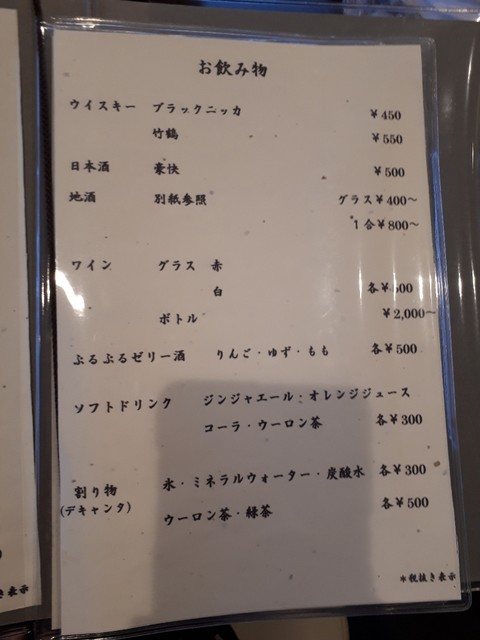 お飲み物
ウイスキー ブラックニッカ ¥450
竹鶴 ¥550
日本酒 豪快 ¥500
地酒 別紙参照 グラス¥400～
1合¥800～
ワイン グラス 赤
白 各¥500
ボトル ¥2,000～
ぷるぷるゼリー酒 りんご・ゆず・もも 各¥500
ソフトドリンク ジンジャエール・オレンジジュース
コーラ・ウーロン茶 各¥300
割り物 氷・ミネラルウォーター・炭酸水 各¥300
(デキャンタ) ウーロン茶・緑茶 各¥500
*税抜き表示
き表示